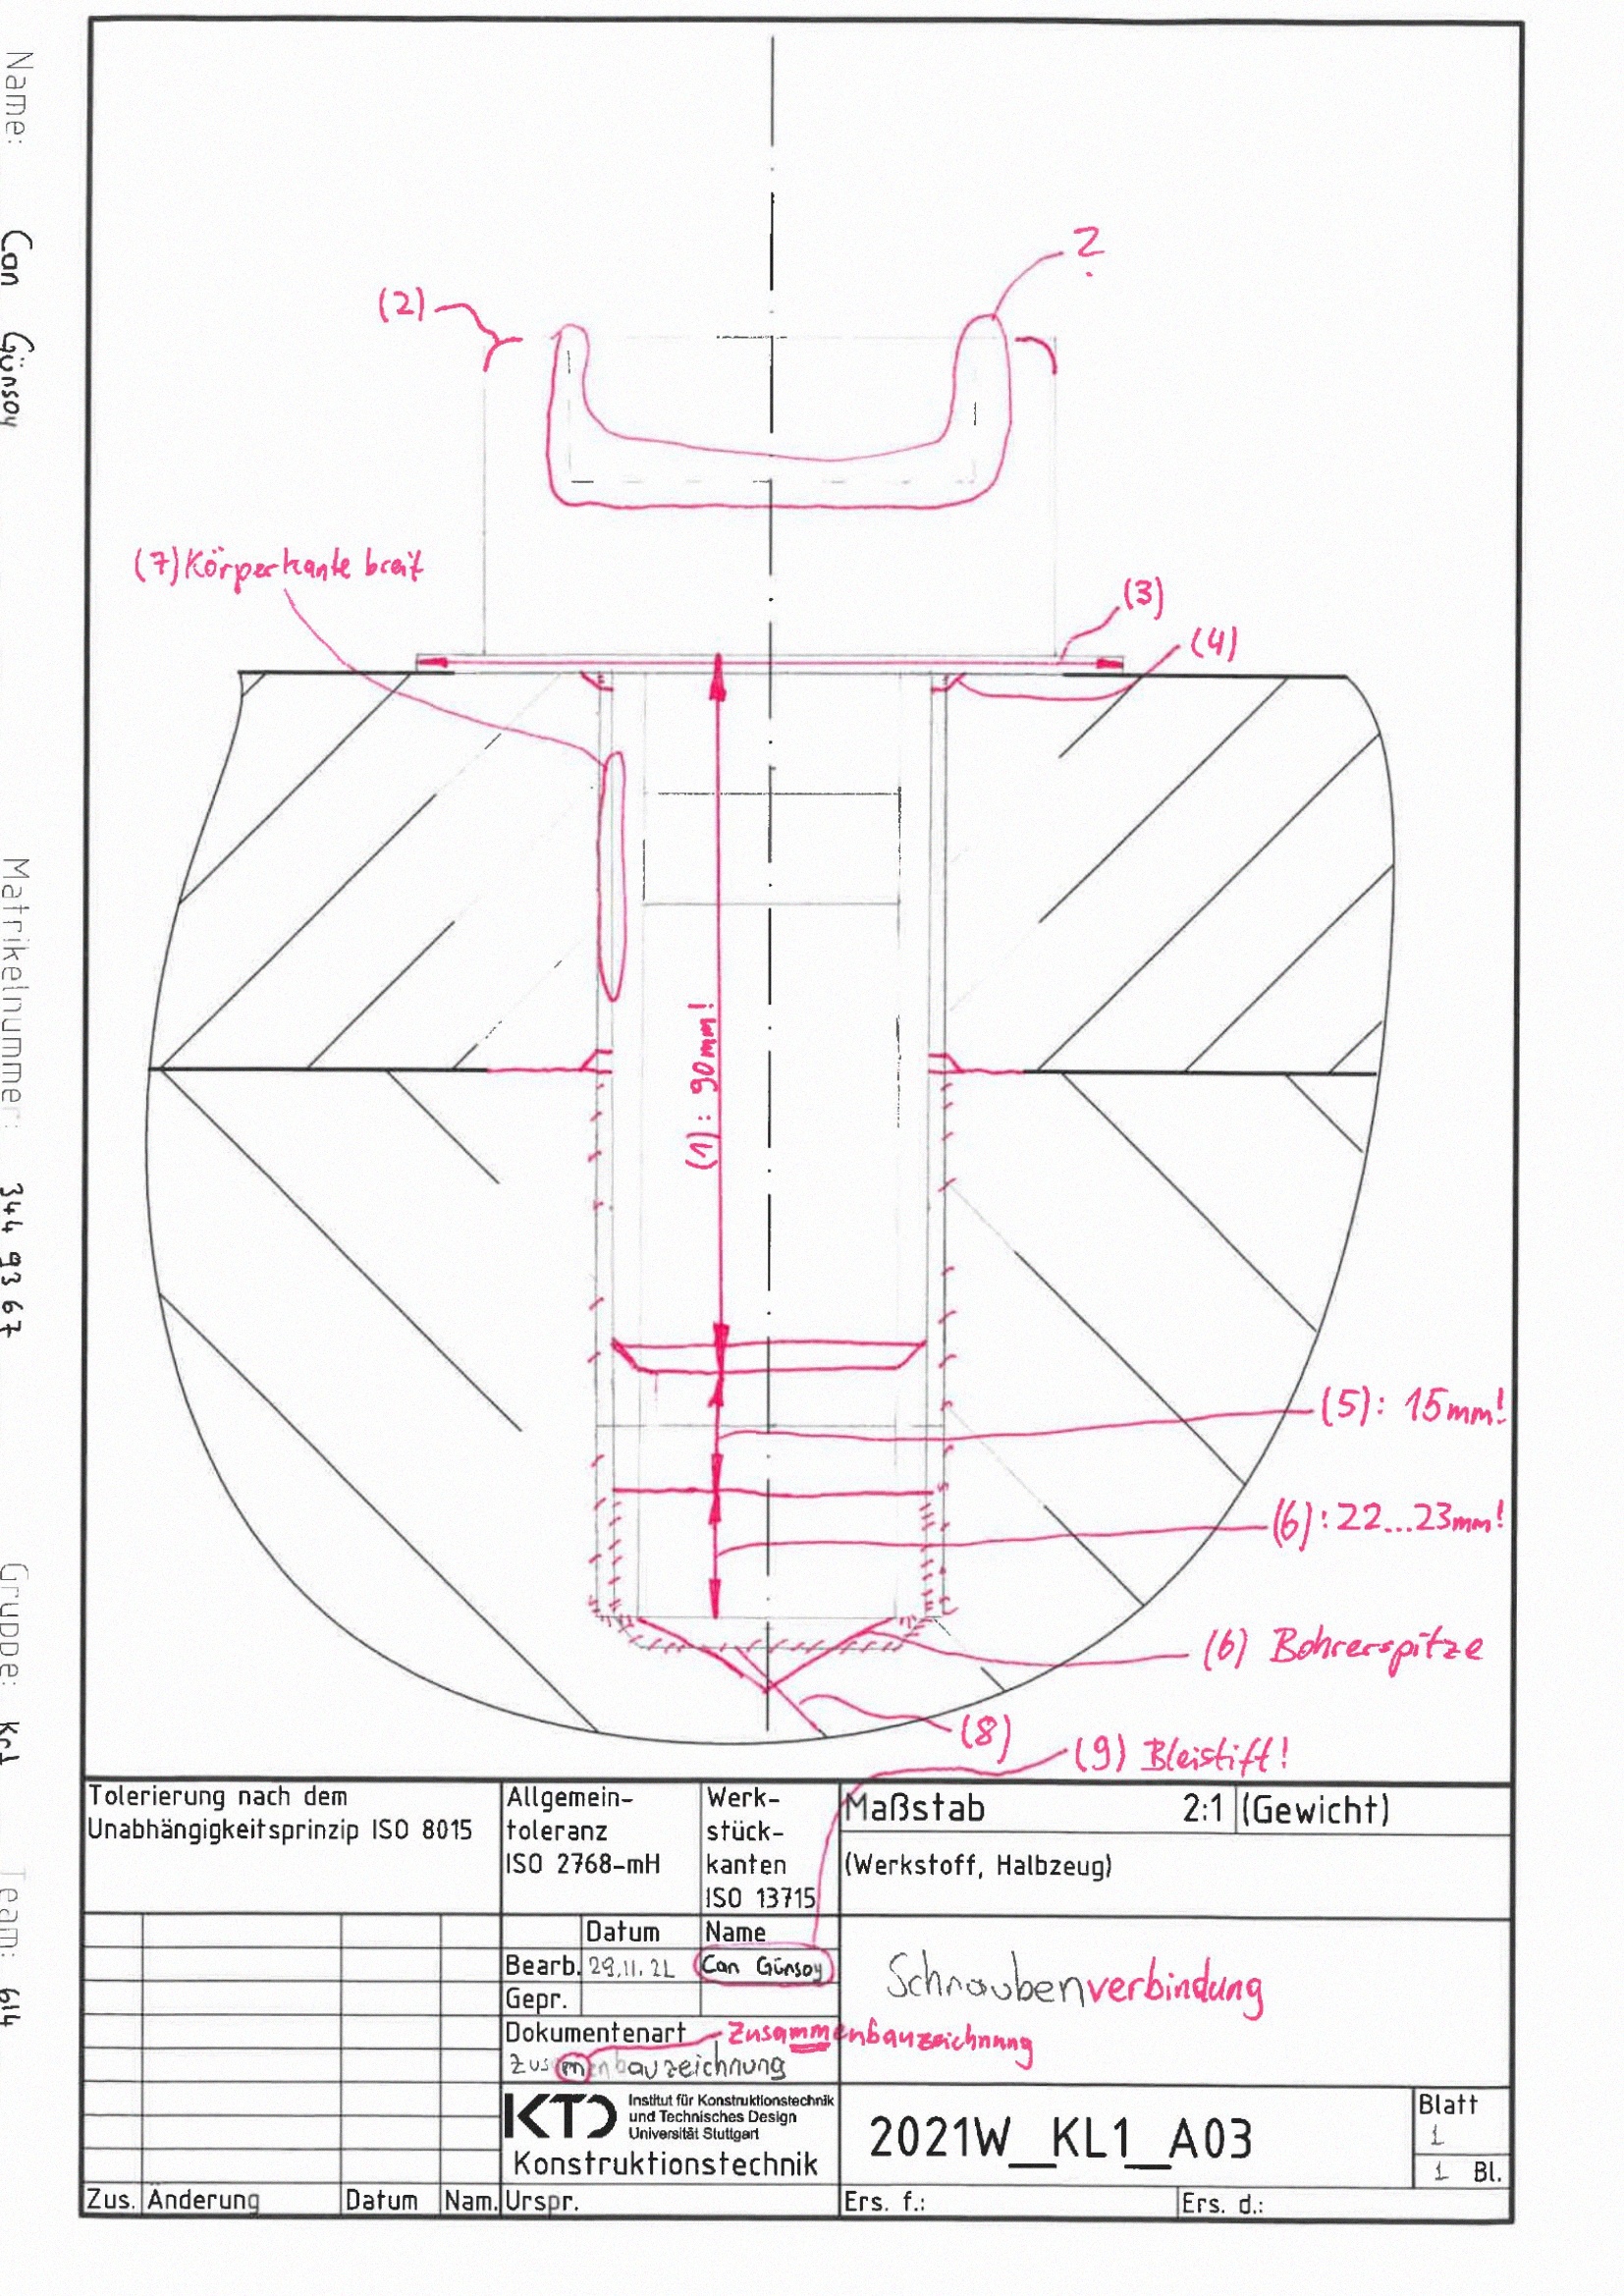 Name: Can Günsoy Matrikelnummer: 344 93 67 Gruppe: Team: 614
?
(2)
(7) Körperkante breit
(3)
(4)
(1): 90mm!
(5): 15mm!
(6): 22...23mm!
(6) Bohrerspitze
(8)
(9) Bleistift!
Tolerierung nach dem
Unabhängigkeitsprinzip ISO 8015
Allgemein-
toleranz
ISO 2768-mH
Werk-
stück-
kanten
ISO 13715
Maßstab 2:1 (Gewicht)
(Werkstoff, Halbzeug)
Datum Name
Bearb. 29.11.21 Can Günsoy
Gepr.
Schraubenverbindung
Dokumentenart Zusammenbauzeichnung
Zusmenbauzeichnung
KTD Institut für Konstruktionstechnik
und Technisches Design
Universität Stuttgart
Konstruktionstechnik
2021W_KL1_A03
Blatt
1
1 Bl.
Zus. Änderung Datum Nam. Urspr. Ers. f.: Ers. d.: